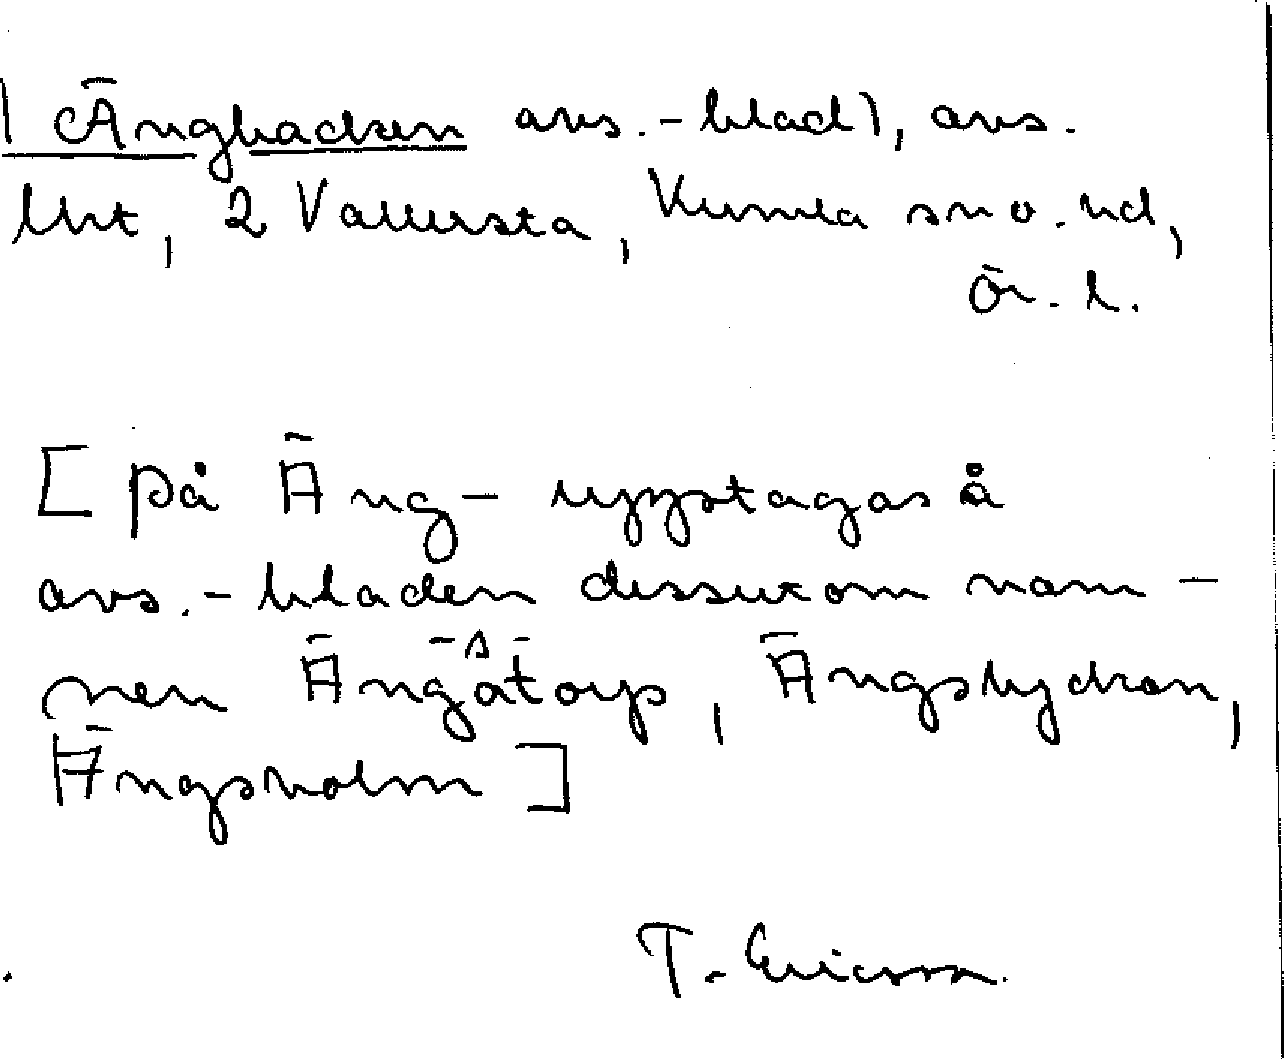 (Ängbacken avs.-blad), avs.
lht, 2 Vallersta, Kumla sn o. hd,
Ör. l.
[på Äng- upptagas å
avs.-bladen dessutom nam-
nen Ängatorp, Ängslyckan,
Ängsholm]
T. Ericsson.